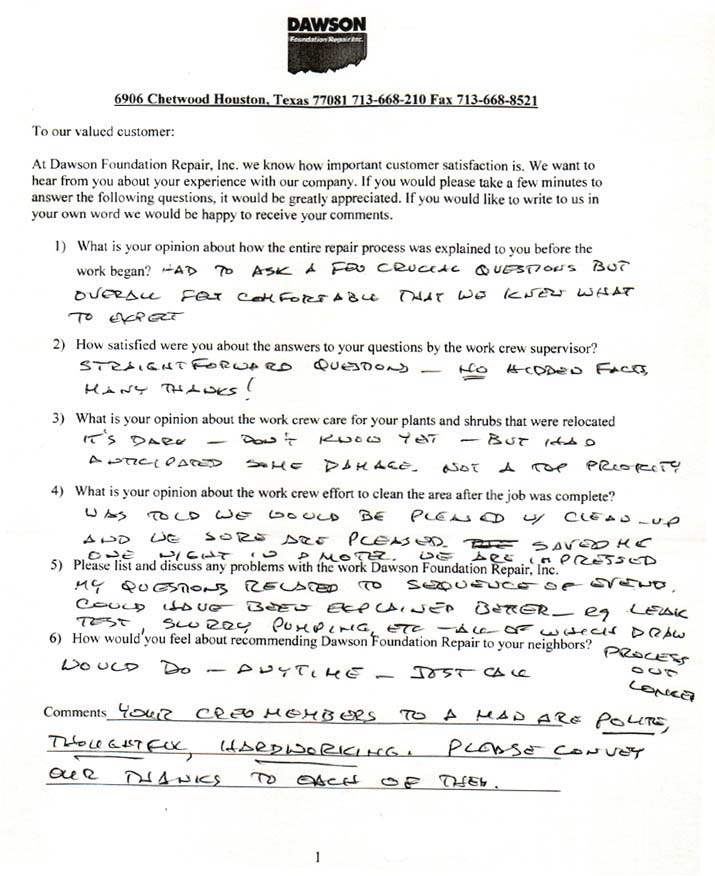 DAWSON
Foundation Repair Inc.
6906 Chetwood Houston, Texas 77081 713-668-210 Fax 713-668-8521
To our valued customer:
At Dawson Foundation Repair, Inc. we know how important customer satisfaction is. We want to
hear from you about your experience with our company. If you would please take a few minutes to
answer the following questions, it would be greatly appreciated. If you would like to write to us in
your own word we would be happy to receive your comments.
1) What is your opinion about how the entire repair process was explained to you before the
work began? HAD TO ASK A FEW CRUCIAL QUESTIONS BUT
OVERALL FELT COMFORTABLE THAT WE KNEW WHAT
TO EXPECT
2) How satisfied were you about the answers to your questions by the work crew supervisor?
STRAIGHTFORWARD QUESTIONS — NO HIDDEN FACTS,
MANY THANKS!
3) What is your opinion about the work crew care for your plants and shrubs that were relocated
IT'S DARK — DON'T KNOW YET — BUT HAD
ANTICIPATED SOME DAMAGE. NOT A TOP PRIORITY
4) What is your opinion about the work crew effort to clean the area after the job was complete?
WAS TOLD WE WOULD BE PLEASED W/ CLEAN-UP
AND WE SURE ARE PLEASED SAVED ME
ONE NIGHT IN A MOTEL. WE ARE IMPRESSED
5) Please list and discuss any problems with the work Dawson Foundation Repair, Inc.
MY QUESTIONS RELATED TO SEQUENCE OF EVENT.
COULD HAVE BEEN EXPLAINED BETTER — eg LEAK
TEST, SLURRY PUMPING, ETC — ALL OF WHICH DRAW
PROCESS
OUT
LONGER
6) How would you feel about recommending Dawson Foundation Repair to your neighbors?
WOULD DO — ANYTIME — JUST CALL
Comments YOUR CREW MEMBERS TO A MAN ARE POLITE,
THOUGHTFUL, HARDWORKING. PLEASE CONVEY
OUR THANKS TO EACH OF THEM.
1